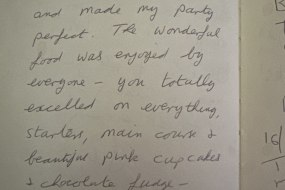 and made my party
perfect. The wonderful
food was enjoyed by
everyone – you totally
excelled on everything,
starters, main course &
beautiful pink cupcakes
& chocolate fudge –
16/